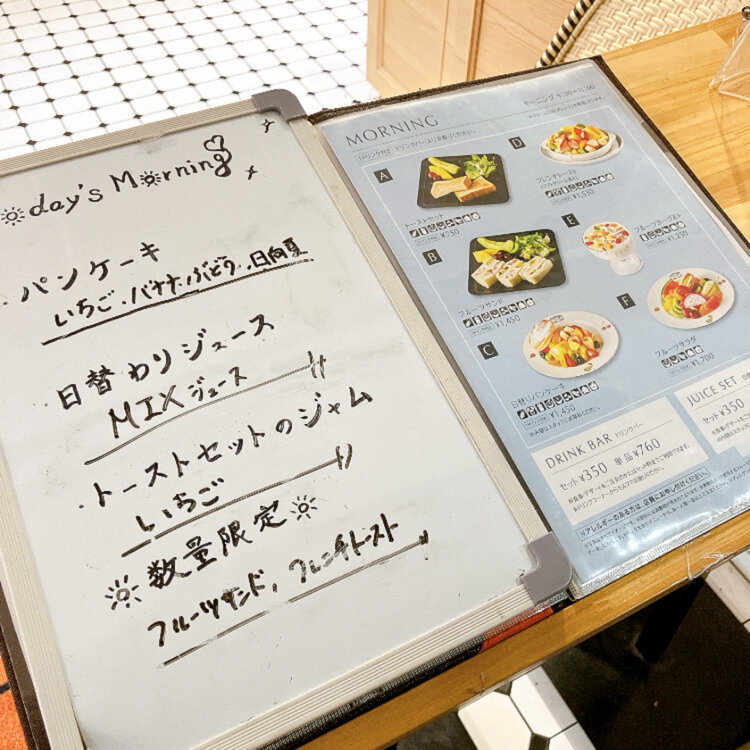 day's Morning
パンケーキ
いちご、バナナ、ぶどう、日向夏
日替わりジュース
MIXジュース
トーストセットのジャム
いちご
数量限定
フルーツサンド、フレンチトースト
モーニング 9:00~11:00
MORNING
A
トーストセット
¥750
B
フルーツサンド
¥1,450
C
日替りパンケーキ
¥1,450
D
フレンチトースト
¥1,530
E
フルーツヨーグルト
¥1,250
F
フルーツサラダ
¥1,700
DRINK BAR ドリンクバー
セット¥350 単品¥760
JUICE SET
セット¥350
※アレルギーのある方は、店員にお申し付けください。